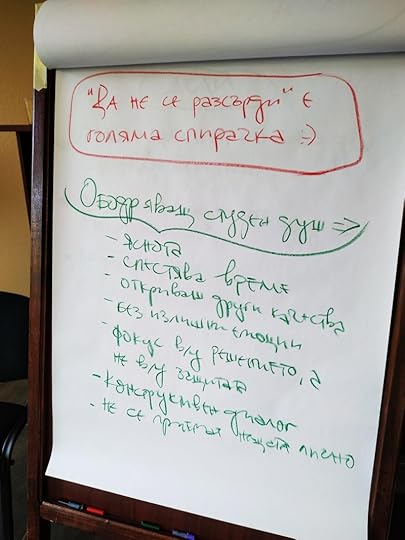 "Да не се разсърди" е
голяма спирачка :-)
Ободряващ студен душ =>
- яснота
- спестява време
- откриваш други качества
- без излишни емоции
- фокус в/у решението, а
не в/у защитата
- конструктивен диалог
- не се приемат нещата лично